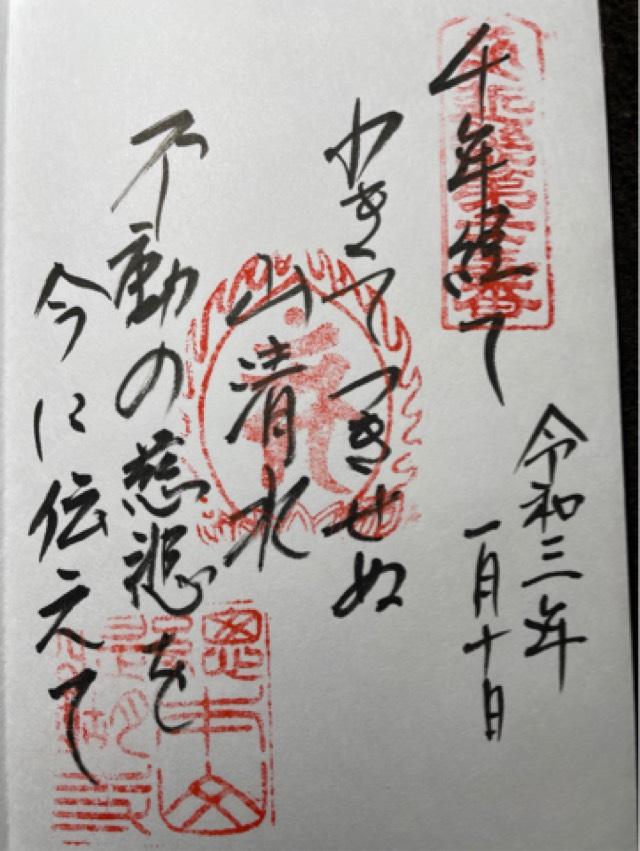 千年経て
わきてつきせぬ
山清水
不動の慈悲を
今に伝えて
令和三年
一月十日